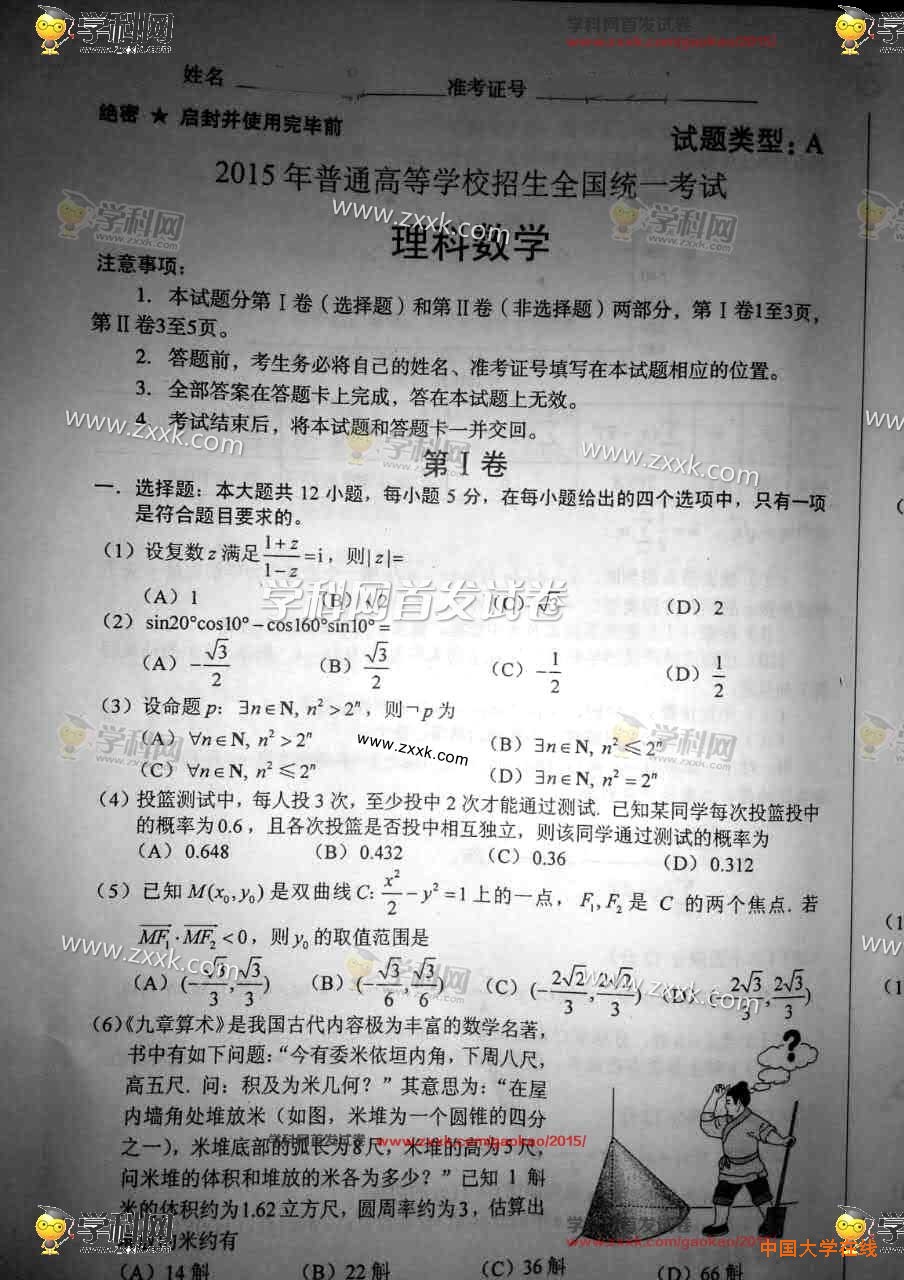 学科网 www.zxxk.com
学科网首发试卷
www.zxxk.com/gaokao/2015/
姓名 准考证号
绝密 ★ 启封并使用完毕前
试题类型：A
2015 年普通高等学校招生全国统一考试
www.zxxk.com
理科数学
注意事项：
1. 本试题分第Ⅰ卷（选择题）和第Ⅱ卷（非选择题）两部分，第Ⅰ卷1至3页，
第Ⅱ卷3至5页。
2. 答题前，考生务必将自己的姓名、准考证号填写在本试题相应的位置。
3. 全部答案在答题卡上完成，答在本试题上无效。
4. 考试结束后，将本试题和答题卡一并交回。
www.zxxk.com
第Ⅰ卷
一. 选择题：本大题共 12 小题，每小题 5 分，在每小题给出的四个选项中，只有一项
是符合题目要求的。
（1）设复数 z 满足 (1+z)/(1-z) =i，则|z|=
学科网首发试卷
（A）1 （B） （C）√3 （D）2
（2）sin20°cos10°-cos160°sin10°=
（A）-√3/2 （B）√3/2 （C）-1/2 （D）1/2
（3）设命题 p：∃n∈N, n²>2ⁿ，则¬p为
（A）∀n∈N, n²>2ⁿ （B）∃n∈N, n²≤2ⁿ
www.zxxk.com
（C）∀n∈N, n²≤2ⁿ （D）∃n∈N, n²=2ⁿ
（4）投篮测试中，每人投 3 次，至少投中 2 次才能通过测试. 已知某同学每次投篮投中
的概率为0.6，且各次投篮是否投中相互独立，则该同学通过测试的概率为
（A）0.648 （B）0.432 （C）0.36 （D）0.312
（5）已知 M(x₀,y₀) 是双曲线 C: x²/2-y²=1 上的一点，F₁,F₂ 是 C 的两个焦点. 若
MF₁·MF₂<0，则 y₀ 的取值范围是
（A）(-√3/3,√3/3) （B）(-√3/6,√3/6) （C）(-2√2/3,2√2/3) （D）(-2√3/3,2√3/3)
（6）《九章算术》是我国古代内容极为丰富的数学名著，
书中有如下问题：“今有委米依垣内角，下周八尺，
高五尺. 问：积及为米几何？”其意思为：“在屋
内墙角处堆放米（如图，米堆为一个圆锥的四分
之一），米堆底部的弧长为8尺，米堆的高为5尺，
问米堆的体积和堆放的米各为多少？”已知 1 斛
米的体积约为1.62立方尺，圆周率约为3，估算出
的米约有
（A）14 斛 （B）22 斛 （C）36 斛 （D）66 斛
?
学科网首发试卷 www.zxxk.com/gaokao/2015/
中国大学在线